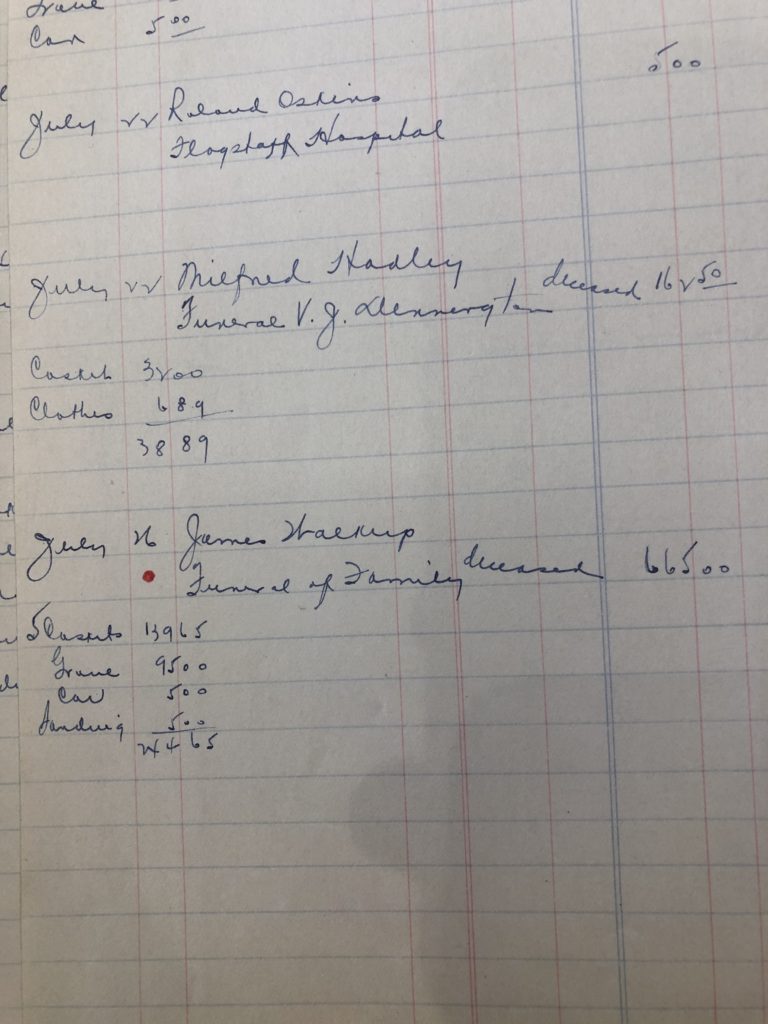 Grave
Car 5.00
500
July 22 Roland Oskins
Flagstaff Hospital
July 22 Milfred Hadley
Funeral V. J. Dennington deceased 162 50
Casket 3200
Clothes 689
3889
July 26 James Walkup
Funeral of Family deceased 66500
5 Caskets 13965
Grave 9500
Car 500
500
24465